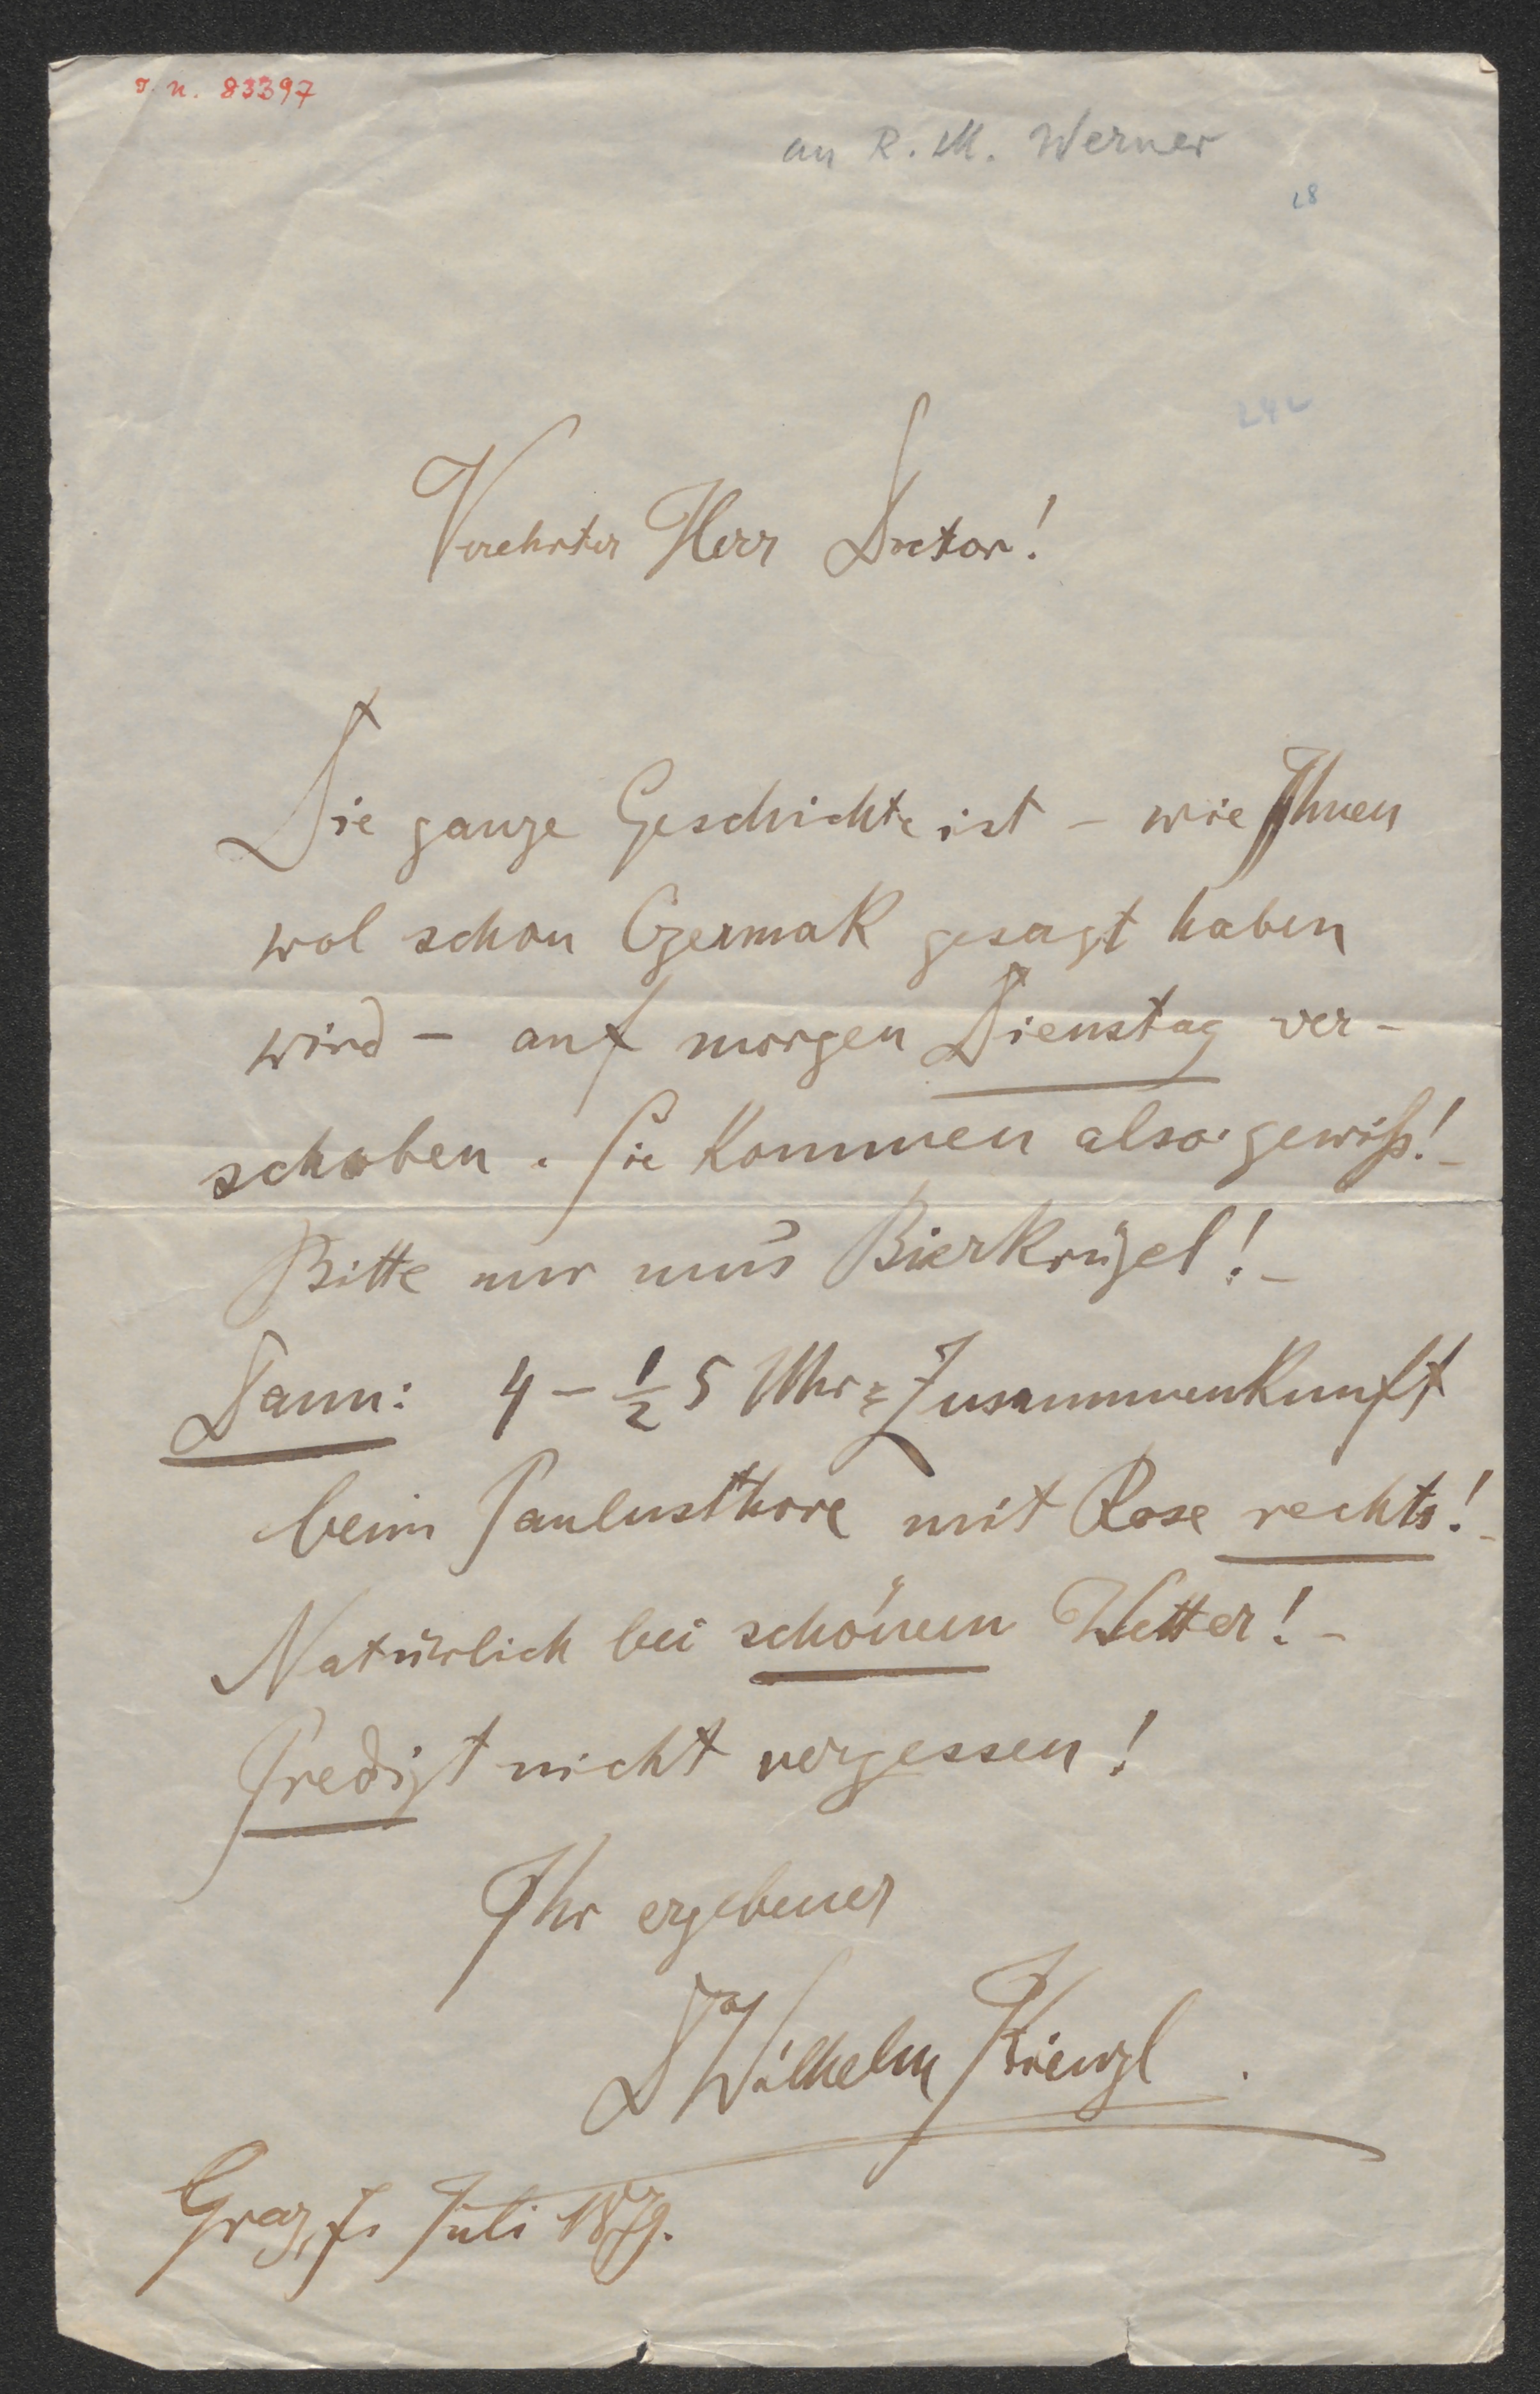 J. N. 83397
an R. M. Werner
28
Verehrter Herr Doctor!
Die ganze Geschichte ist – wie Ihnen
wol schon Czermak gesagt haben
wird – auf morgen Dienstag ver-
schoben. Sie kommen also gewiß! –
Bitte nur um's Bierkrügel! –
Dann: 4 – ½ 5 Uhr = Zusammenkunft
beim Paulusthore mit Rose rechts! –
Natürlich bei schönem Wetter! –
Predigt nicht vergessen!
Ihr ergebener
Dr Wilhelm Kienzl.
Graz, 7. Juli 1879.